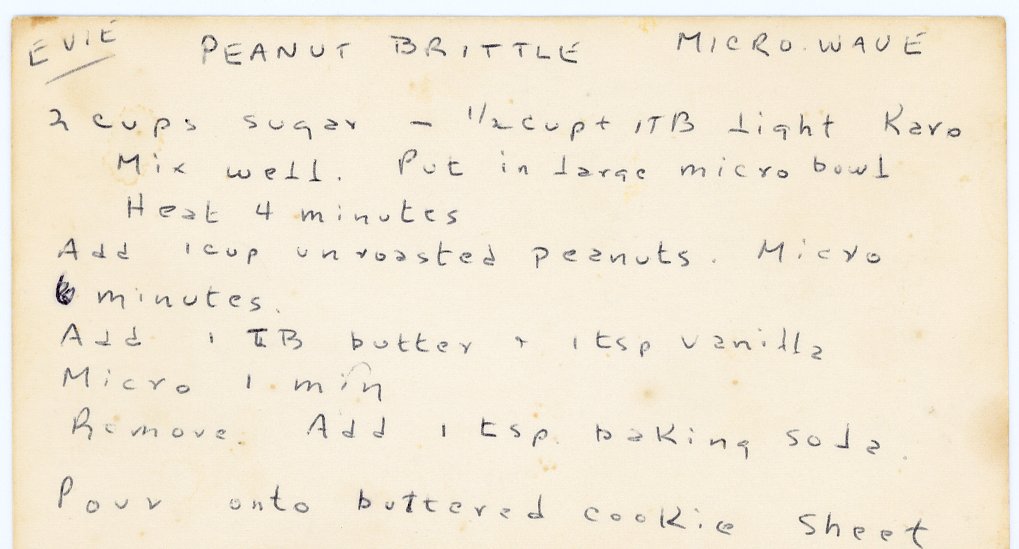 EVIE PEANUT BRITTLE MICRO.WAVE
2 cups sugar – 1/2 cup + 1TB Light Karo
Mix well. Put in large micro bowl
Heat 4 minutes
Add 1 cup unroasted peanuts. Micro
6 minutes.
Add 1 TB butter + 1 tsp vanilla
Micro 1 min
Remove. Add 1 tsp baking soda.
Pour onto buttered cookie sheet